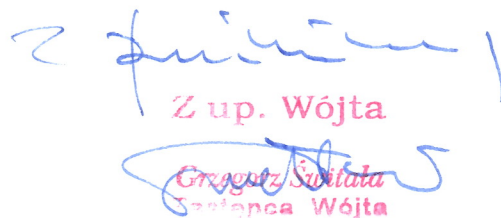 Z
Z up. Wójta
Grzegorz Świtała
Zastępca Wójta